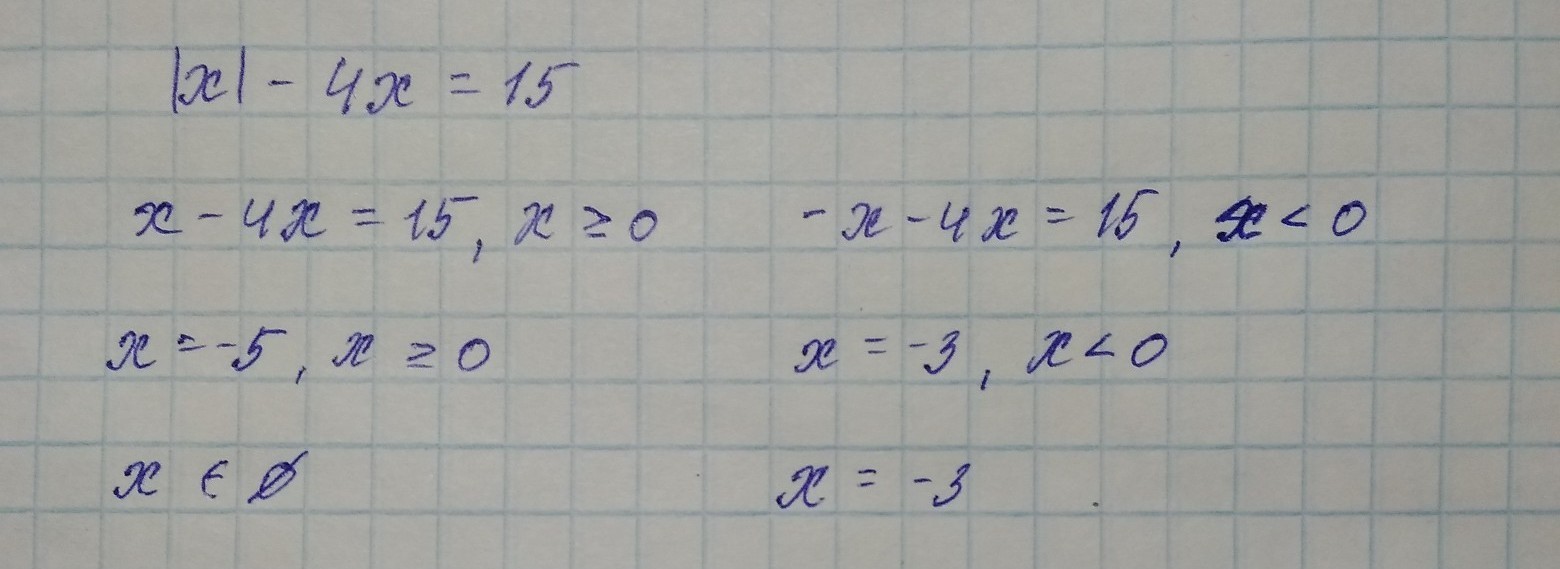 |x| - 4x = 15
x - 4x = 15, x ≥ 0 -x - 4x = 15, x < 0
x = -5, x ≥ 0 x = -3, x < 0
x ∈ ∅ x = -3